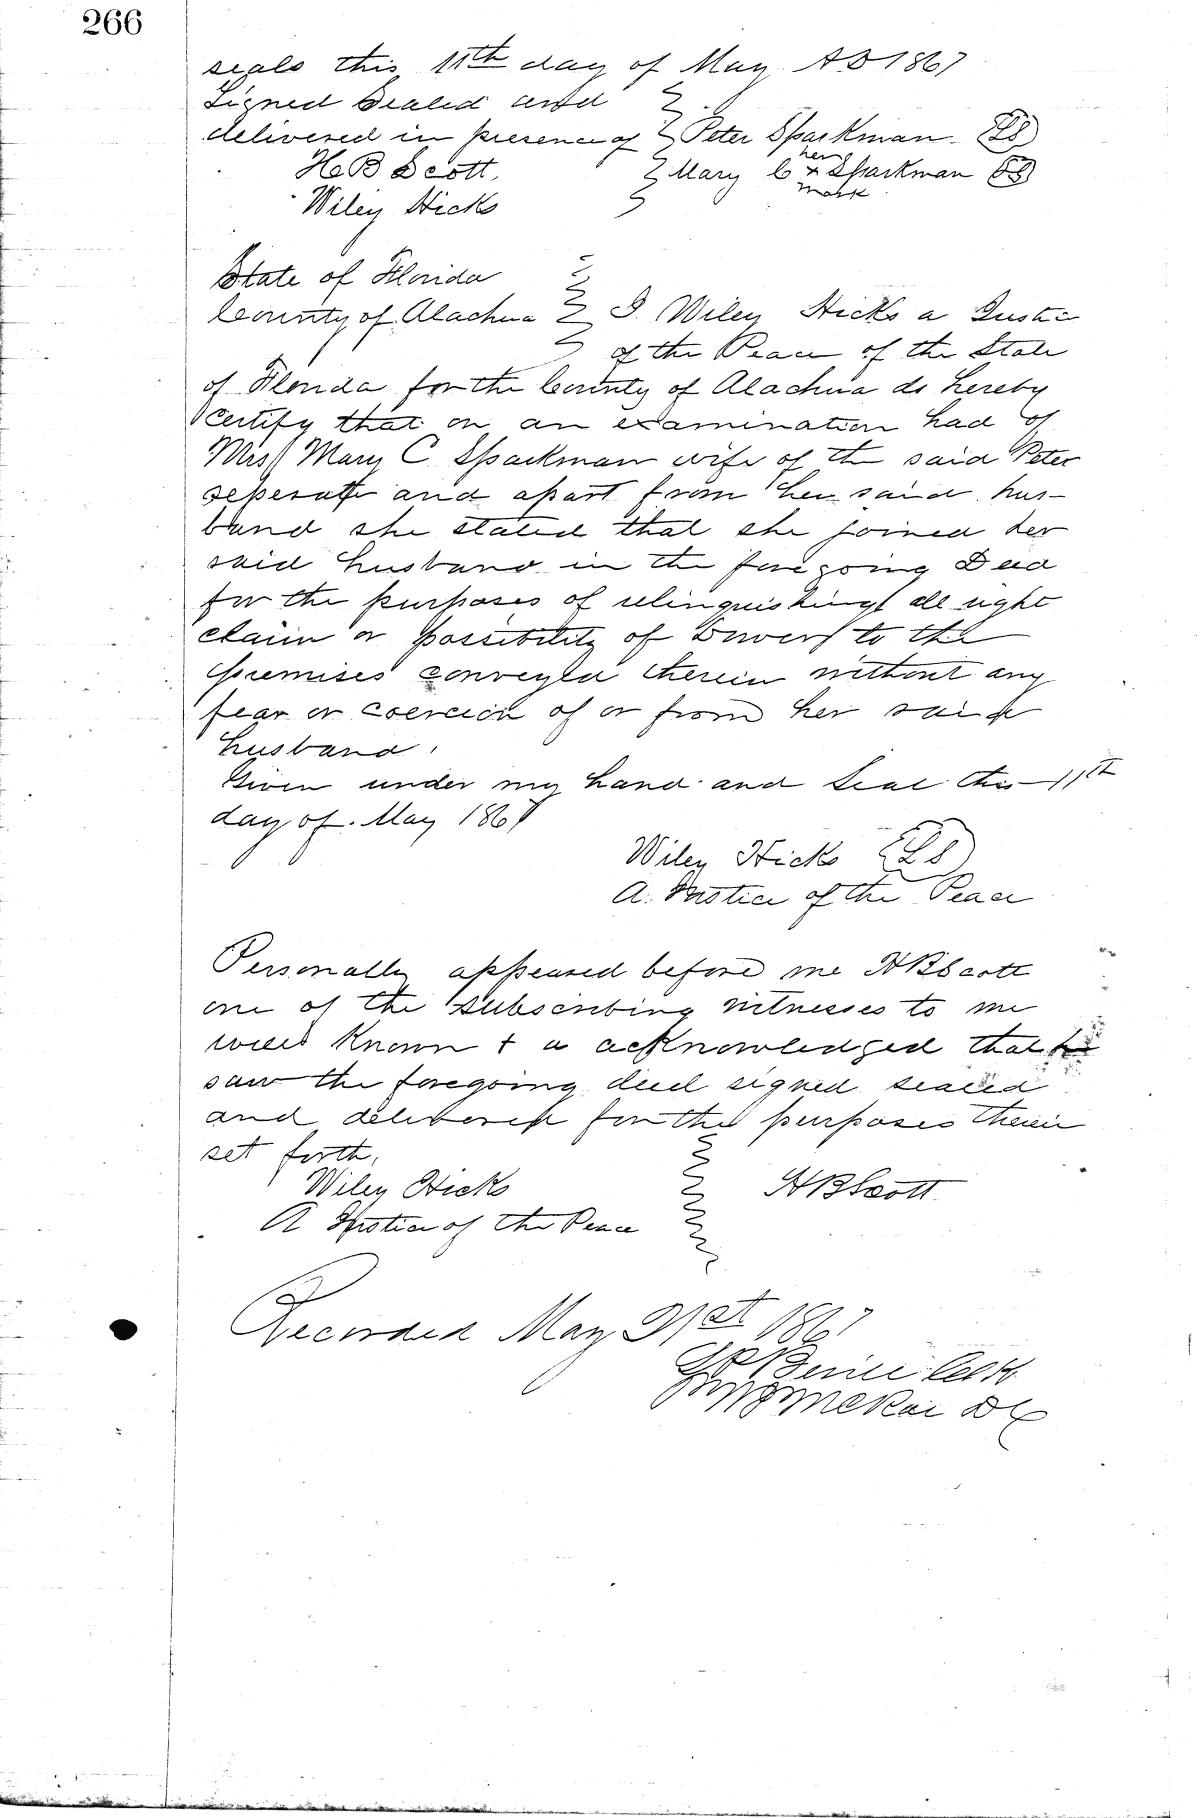 266
seals this 11th day of May AD 1867
Signed Sealed and
delivered in presence of Peter Sparkman LS
H B Scott. Mary C her x mark Sparkman LS
Wiley Hicks
State of Florida
County of Alachua I Wiley Hicks a Justice
of the Peace of the State
of Florida for the County of Alachua do hereby
certify that on an examination had of
Mrs Mary C Sparkman wife of the said Peter
seperate and apart from her said hus-
band she stated that she joined her
said husband in the foregoing Deed
for the purposes of relinquishing all right
claim or possibility of Dower to the
premises conveyed therein without any
fear or coercion of or from her said
husband.
Given under my hand and Seal this 11th
day of May 1867
Wiley Hicks LS
A Justice of the Peace
Personally appeared before me H B Scott
one of the subscribing witnesses to me
well known & a acknowledged that he
saw the foregoing deed signed sealed
and delivered for the purposes therein
set forth,
Wiley Hicks H B Scott
A Justice of the Peace
Recorded May 21st 1867
Clerk
DC